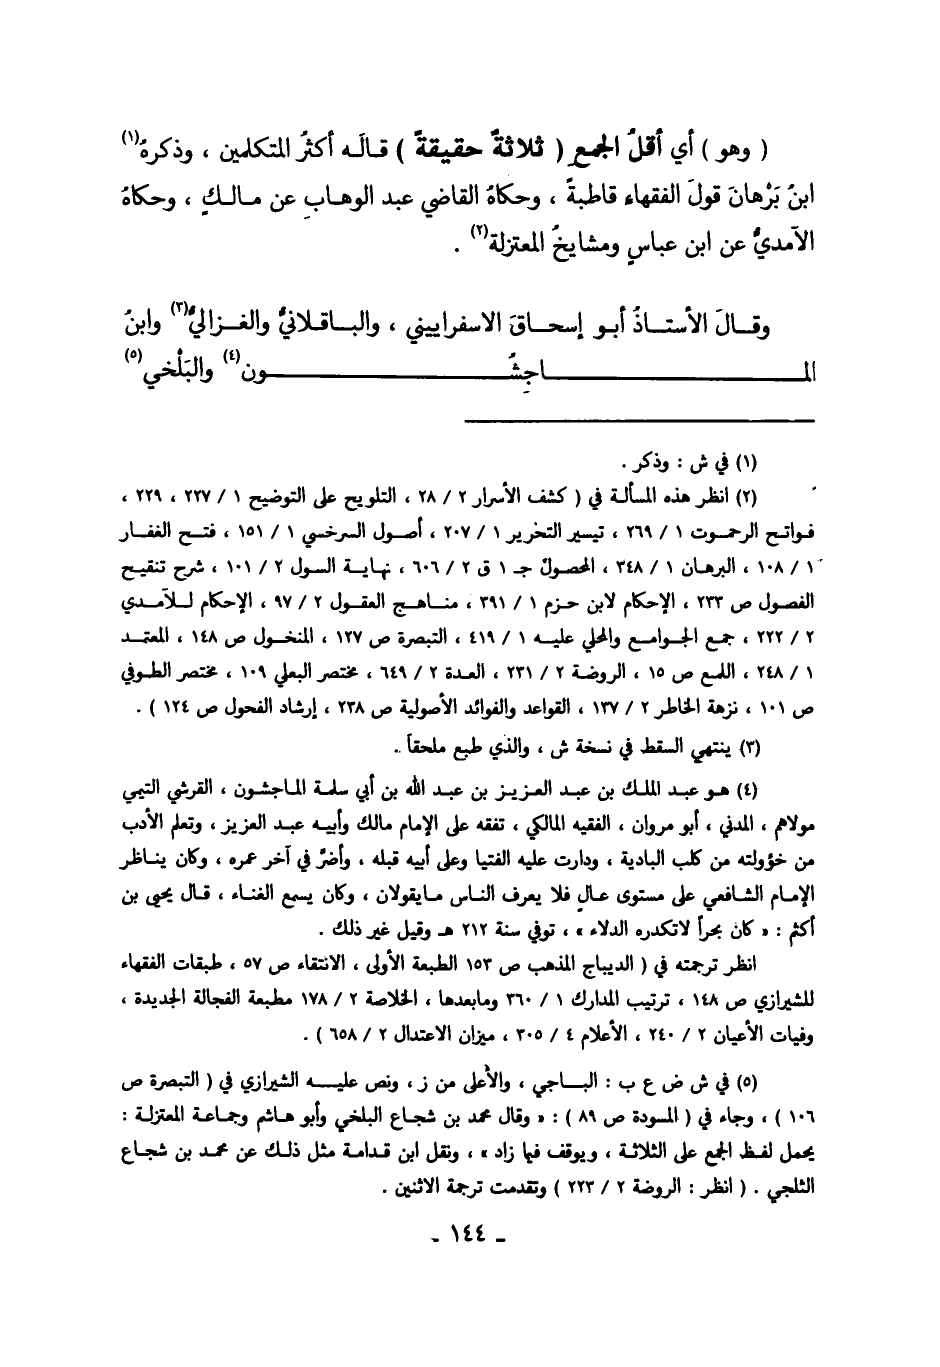 ( وهو ) أي أقلُ الجمع ( ثلاثةٌ حقيقةً ) قالَه أكثرُ المتكلمين ، وذكرهُ(١)
ابنُ بَرْهانَ قولَ الفقهاء قاطبةً ، وحكاهُ القاضي عبد الوهابِ عن مالكٍ ، وحكاهُ
الآمديُّ عن ابن عباسٍ ومشايخُ المعتزلة(٢) .
وقالَ الأستاذُ أبو إسحاقَ الاسفراييني ، والباقلانيُّ والغزاليُّ(٣) وابنُ
الماجِشُون(٤) والبَلْخي(٥)
(١) في ش : وذكر .
(٢) انظر هذه المسألة في ( كشف الأسرار ٢ / ٢٨ ، التلويح على التوضيح ١ / ٢٢٧ ، ٢٢٩ ،
فواتح الرحموت ١ / ٢٦٩ ، تيسير التحرير ١ / ٢٠٧ ، أصول السرخسي ١ / ١٥١ ، فتح الغفار
١ / ١٠٨ ، البرهان ١ / ٣٤٨ ، المحصول جـ ١ ق ٢ / ٦٠٦ ، نهاية السول ٢ / ١٠١ ، شرح تنقيح
الفصول ص ٢٣٣ ، الإحكام لابن حزم ١ / ٣٩١ ، مناهج العقول ٢ / ٩٧ ، الإحكام للآمدي
٢ / ٢٢٢ ، جمع الجوامع والمحلي عليه ١ / ٤١٩ ، التبصرة ص ١٢٧ ، المنخول ص ١٤٨ ، المعتمد
١ / ٢٤٨ ، اللمع ص ١٥ ، الروضة ٢ / ٢٣١ ، العدة ٢ / ٦٤٩ ، مختصر البعلي ١٠٩ ، مختصر الطوفي
ص ١٠١ ، نزهة الخاطر ٢ / ١٣٧ ، القواعد والفوائد الأصولية ص ٢٣٨ ، إرشاد الفحول ص ١٢٤ ) .
(٣) ينتهي السقط في نسخة ش ، والذي طبع ملحقاً .
(٤) هو عبد الملك بن عبد العزيز بن عبد الله بن أبي سلمة الماجشون ، القرشي التيمي
مولاهم ، المدني ، أبو مروان ، الفقيه المالكي ، تفقه على الإمام مالك وأبيه عبد العزيز ، وتعلم الأدب
من خؤولته من كلب البادية ، ودارت عليه الفتيا وعلى أبيه قبله ، وأضرَّ في آخر عمره ، وكان يناظر
الإمام الشافعي على مستوى عالٍ فلا يعرف الناس مايقولان ، وكان يسمع الغناء ، قال يحيى بن
أكثم : « كان بحراً لاتكدره الدلاء » ، توفي سنة ٢١٢ هـ وقيل غير ذلك .
انظر ترجمته في ( الديباج المذهب ص ١٥٣ الطبعة الأولى ، الانتقاء ص ٥٧ ، طبقات الفقهاء
للشيرازي ص ١٤٨ ، ترتيب المدارك ١ / ٣٦٠ ومابعدها ، الخلاصة ٢ / ١٧٨ مطبعة الفجالة الجديدة ،
وفيات الأعيان ٢ / ٢٤٠ ، الأعلام ٤ / ٣٠٥ ، ميزان الاعتدال ٢ / ٦٥٨ ) .
(٥) في ش ض ع ب : الباجي ، والأعلى من ز ، ونص عليه الشيرازي في ( التبصرة ص
١٠٦ ) ، وجاء في ( المسودة ص ٨٩ ) : « وقال محمد بن شجاع البلخي وأبو هاشم وجماعة المعتزلة :
يحمل لفظ الجمع على الثلاثة ، ويوقف فيما زاد » ، ونقل ابن قدامة مثل ذلك عن محمد بن شجاع
الثلجي . ( انظر : الروضة ٢ / ٢٢٣ ) وتقدمت ترجمة الاثنين .
ـ ١٤٤ ـ